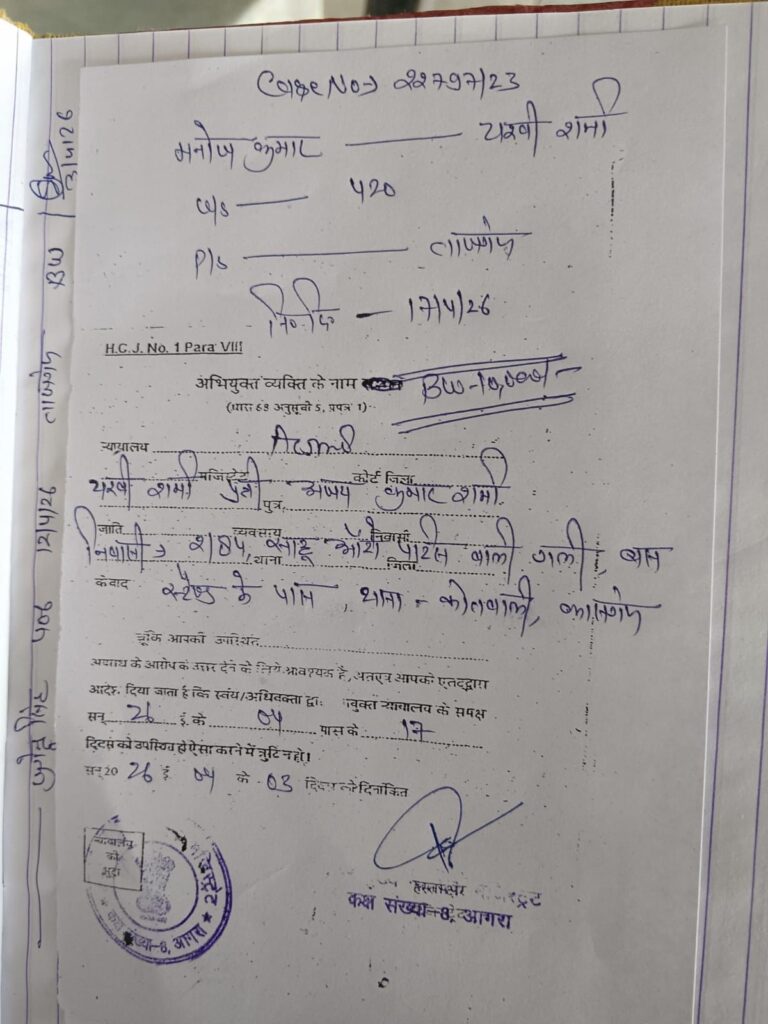 Case No 22797/23
मनोज कुमार — यश्वी शर्मा
u/s — 420
P/s — ताजगंज
नि0 ति0 — 17/4/26
H.C.J. No. 1 Para VIII
अभियुक्त व्यक्ति के नाम
BW-10,000/-
(धारा 68 अनुसूची 5, प्रपत्र 1)
न्यायालय ACJM 8
मजिस्ट्रेट कोर्ट जिला
यश्वी शर्मा पुत्री अजय कुमार शर्मा
पुत्र,
जाति व्यवसाय निवासी
निवासी → साहू ऑटो पार्टस वाली गली, बस
थाना जिला
स्टैण्ड के पास, थाना - कोतवाली,
चूंकि आपकी उपस्थित
अपराध के आरोप का उत्तर देने के लिये आवश्यक है, अतएव आपको एतदद्वारा
आदेश दिया जाता है कि स्वंय/अधिवक्ता द्वा युक्त न्यायालय के समक्ष
सन् 26 ई. के 04 मास के 17
दिवस को उपस्थित हो ऐसा करने में त्रुटि न हो।
सन् 20 26 ई 04 के 03 दिवस को दिनांकित
न्यायालय
की
मुद्रा
कक्ष संख्या-8, आगरा
हस्ताक्षर
कक्ष संख्या-8, आगरा
12/4/26 ताजगंज BW
3/4/26